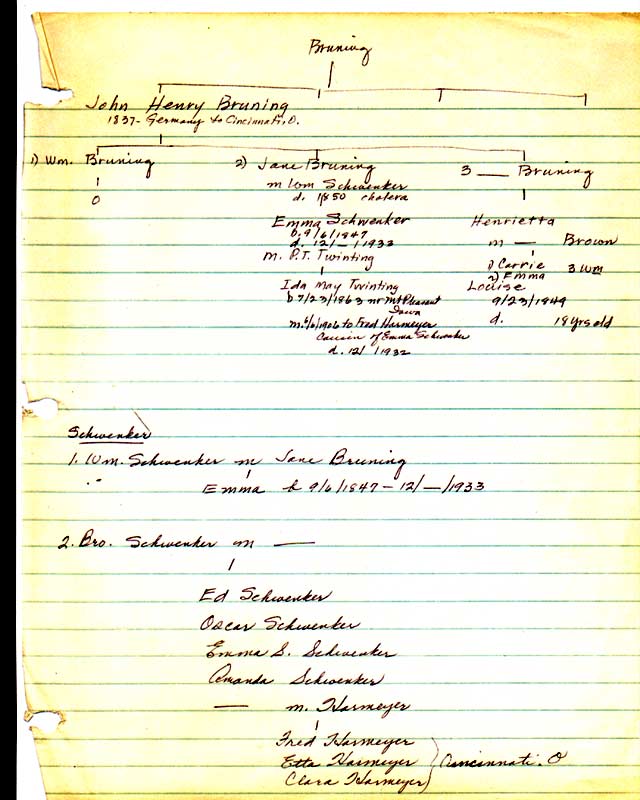 Bruning
John Henry Bruning
1837- Germany to Cincinnati, O.
1) Wm. Bruning
0
2) Jane Bruning
m Wm Schwenker
d. 1850 cholera
Emma Schwenker
b. 9/6/1847
d. 12/—/1933
m. P.T. Twinting
Ida May Twinting
b 7/23/1863 nr Mt Pleasant
Iowa
m. 6/6/1906 to Fred Harmeyer
Cousin of Emma Schwenker
d. 12/ /1932
3 —— Bruning
Henrietta
m — Brown
1) Carrie 3 Wm
2) Emma
Louise
9/23/1849
d. 18 yrs old
Schwenker
1. Wm. Schwenker m Jane Bruning
Emma b 9/6/1847 - 12/—/1933
2. Bro. Schwenker m ——
Ed Schwenker
Oscar Schwenker
Emma S. Schwenker
Amanda Schwenker
—— m. Harmeyer
Fred Harmeyer
Etta Harmeyer Cincinnati. O
Clara Harmeyer